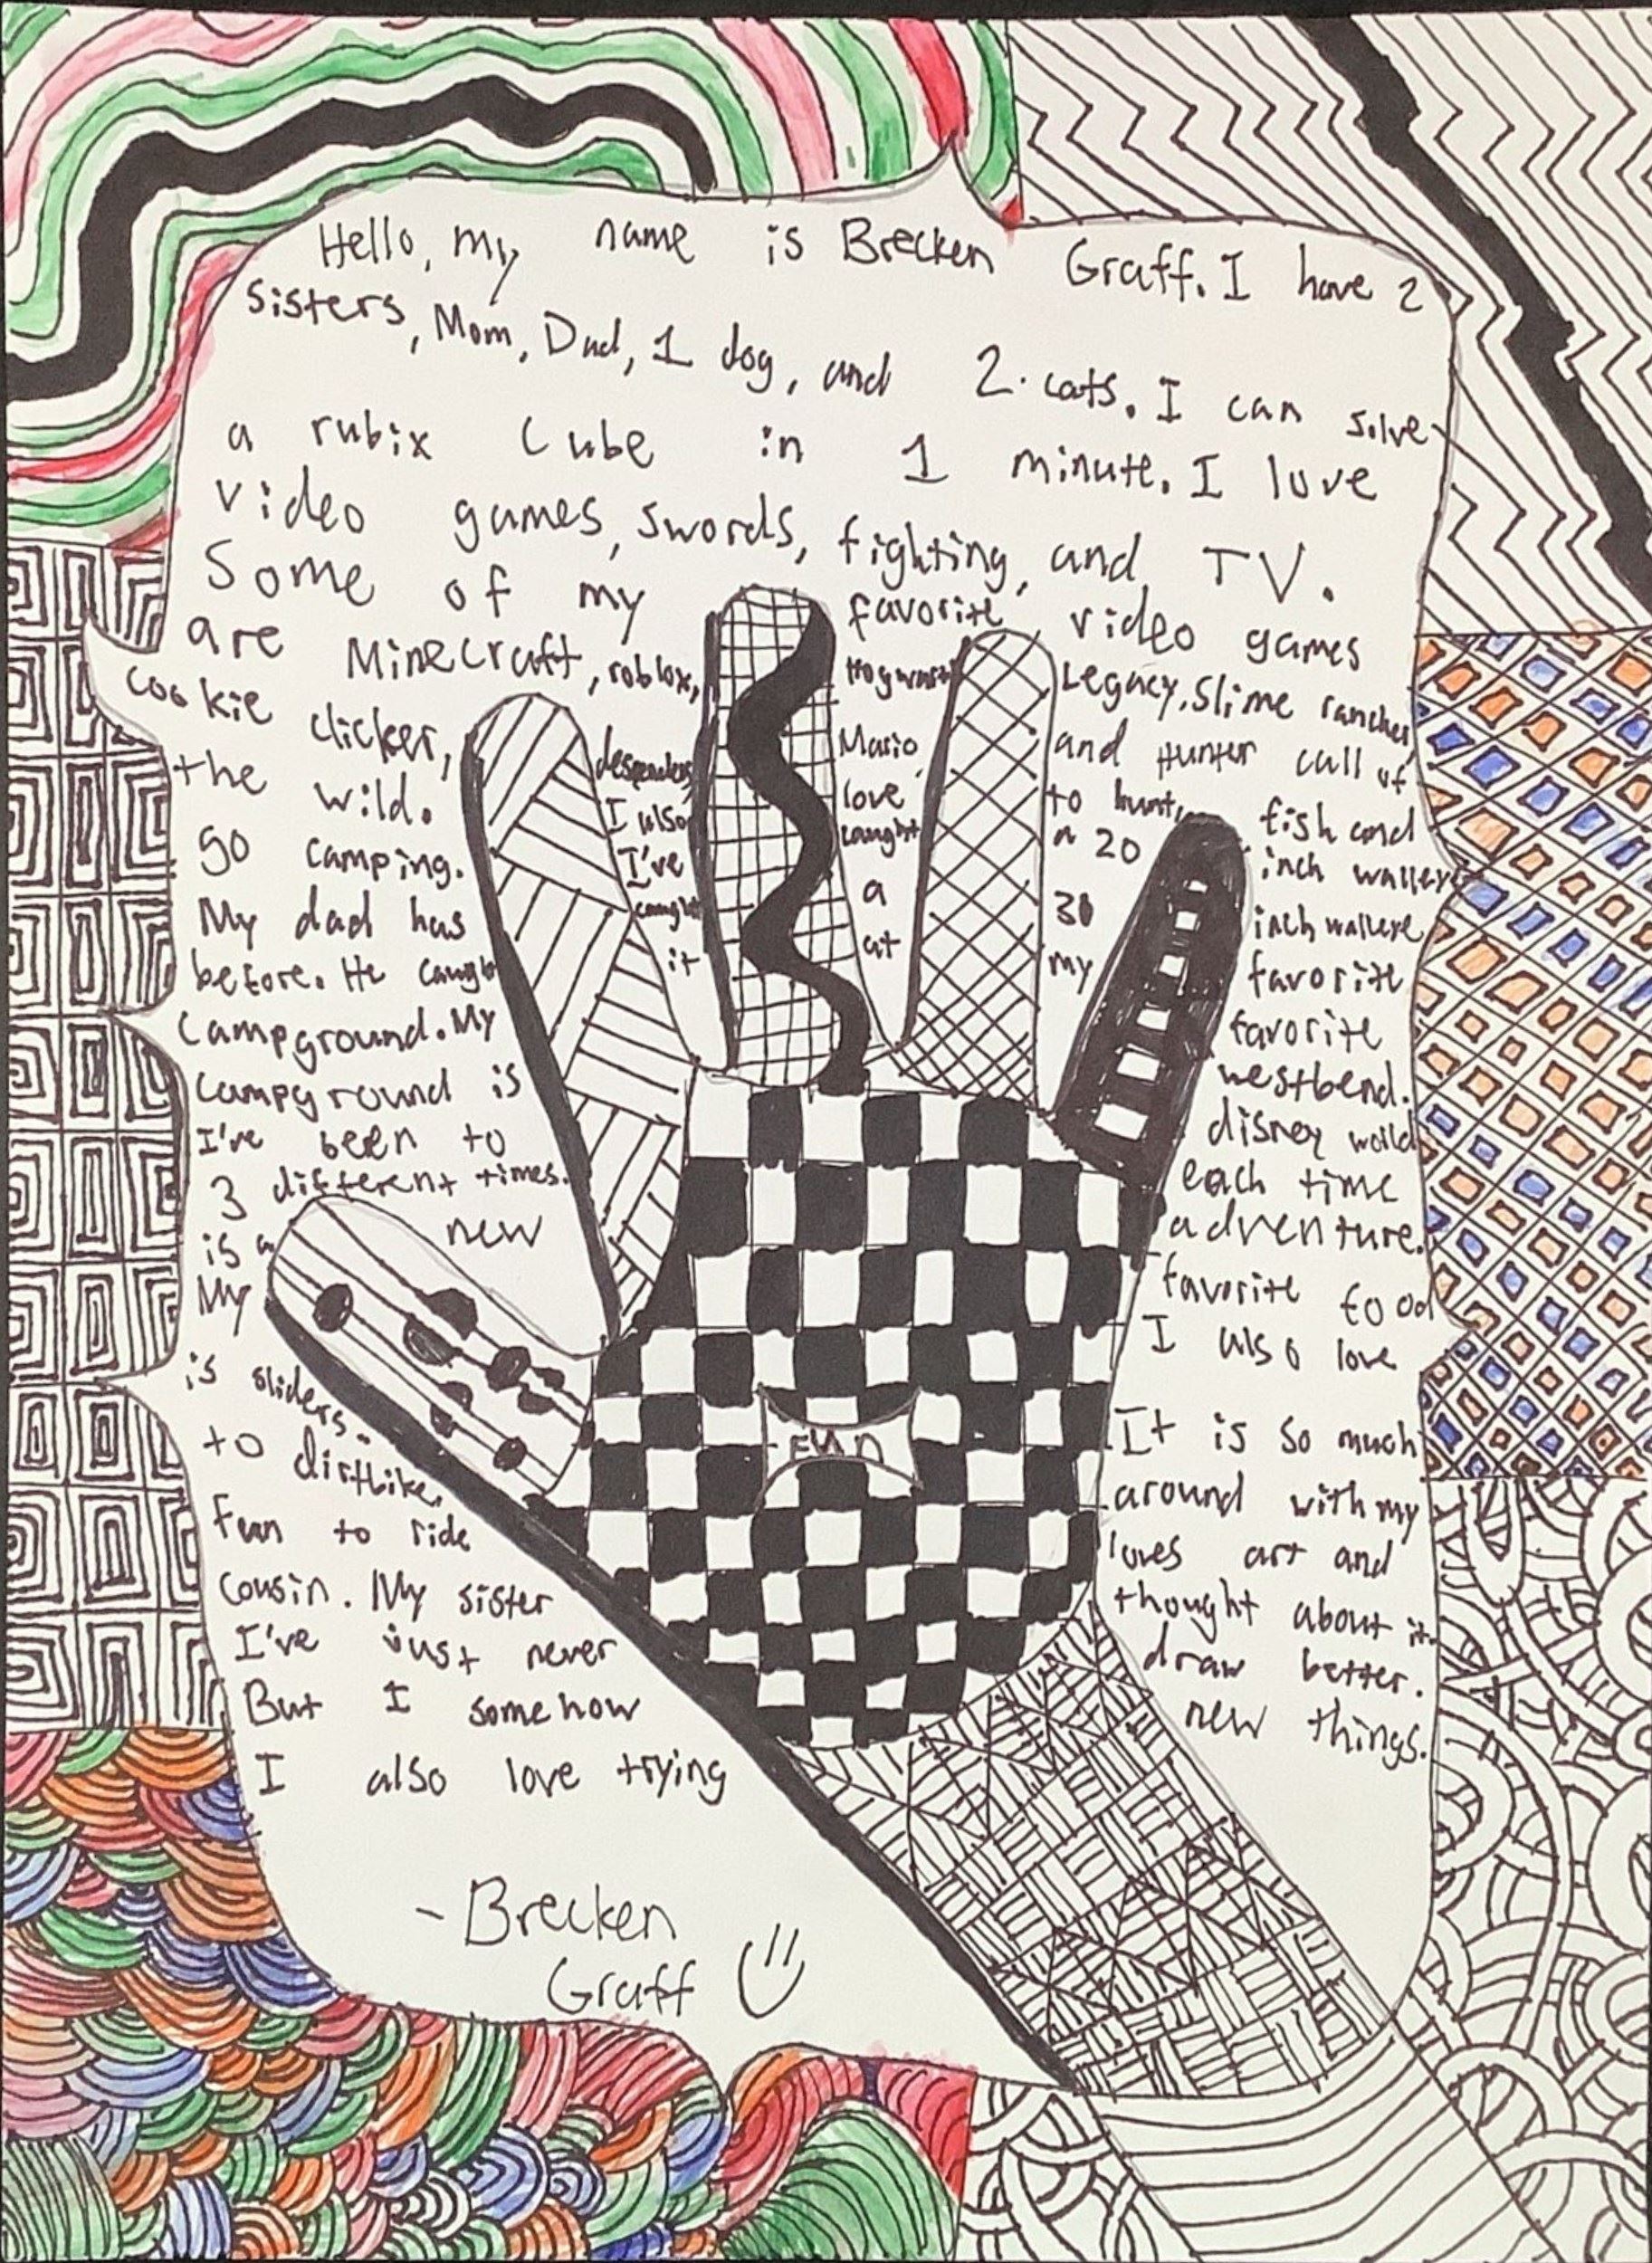 Hello, my name is Brecken Graff. I have 2
sisters, Mom, Dad, 1 dog, and 2 cats. I can solve
a rubix cube in 1 minute. I love
video games, swords, fighting, and TV.
Some of my favorite video games
are Minecraft, roblox, Hogwarts Legacy, Slime rancher
cookie clicker, Mario and Hunter call of
the wild. I also love to hunt, fish and
go camping. I've caught a 20 inch walleye
My dad has caught a 30 inch walleye
before. He caught it at my favorite
campground. My favorite
campground is westbend.
I've been to disney world
3 different times. each time
is a new adventure.
My favorite food
is sliders. I also love
to dirtbike. It is so much
fun to ride around with my
cousin. My sister loves art and
I've just never thought about it.
But I somehow draw better.
I also love trying new things.
Fun
- Brecken
Graff